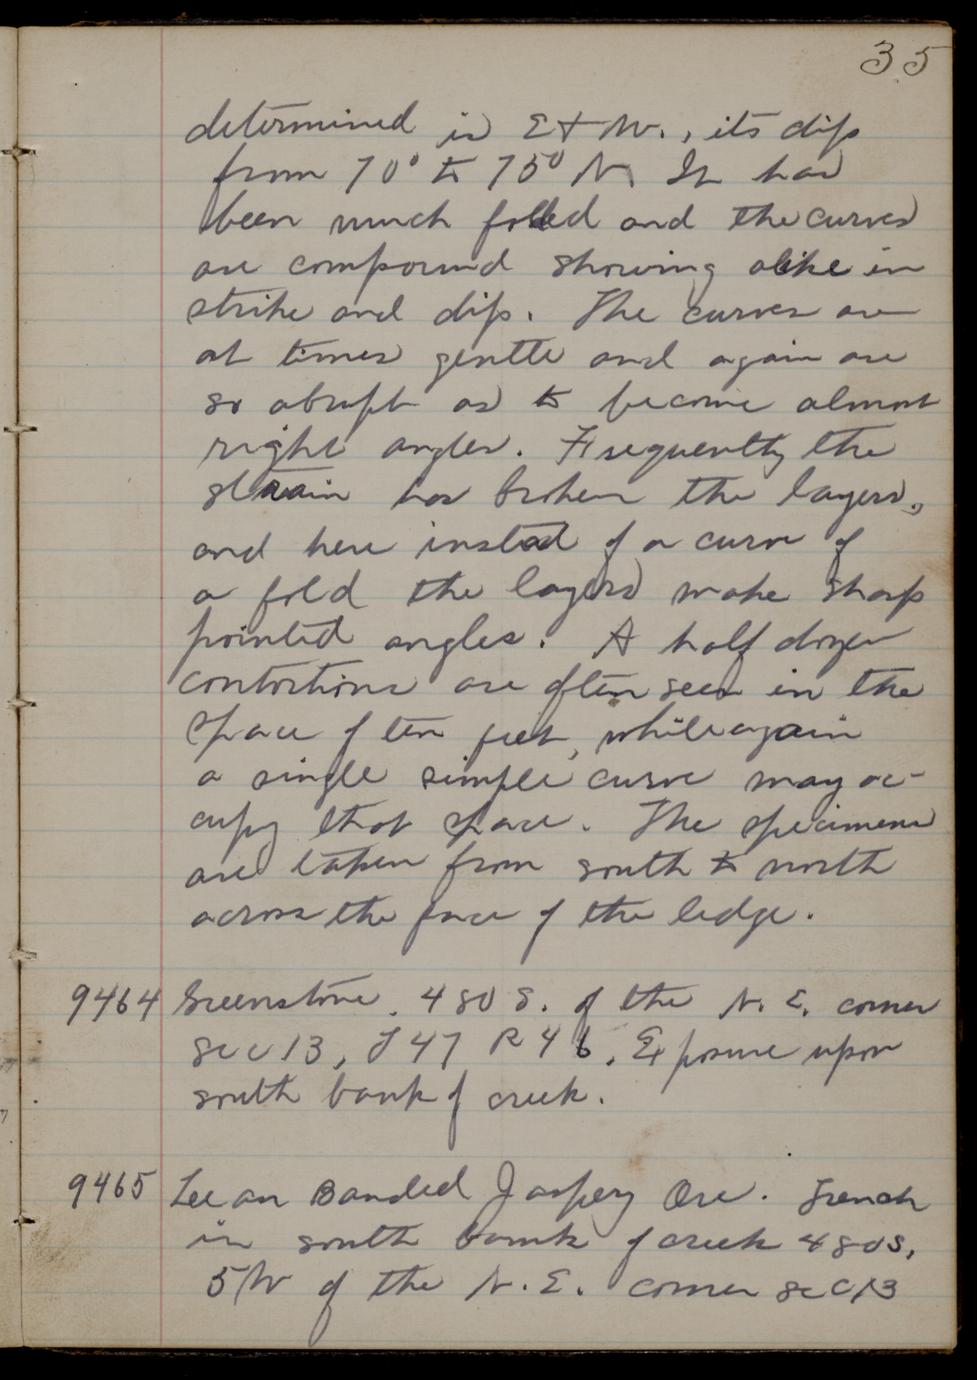 35
determined is E & W., its dip
from 70° to 75° N. It has
been much folded and the curves
are compound showing alike in
strike and dip. The curves are
at times gentle and again are
so abrupt as to become almost
right angles. Frequently the
strain has broken the layers,
and here instead of a curve of
a fold the layers make sharp
pointed angles. A half dozen
contortions are often seen in the
space of ten feet, while again
a single simple curve may oc-
cupy that space. The specimens
are taken from south to north
across the face of the ledge.
9464 Greenstone. 480 S. of the N. E. corner
Sec 13, T 47 R 46. Exposure upon
south bank of creek.
9465 Lean Banded Jaspery Ore. Trench
in south bank of creek 480 S,
5 W of the N. E. corner Sec 13